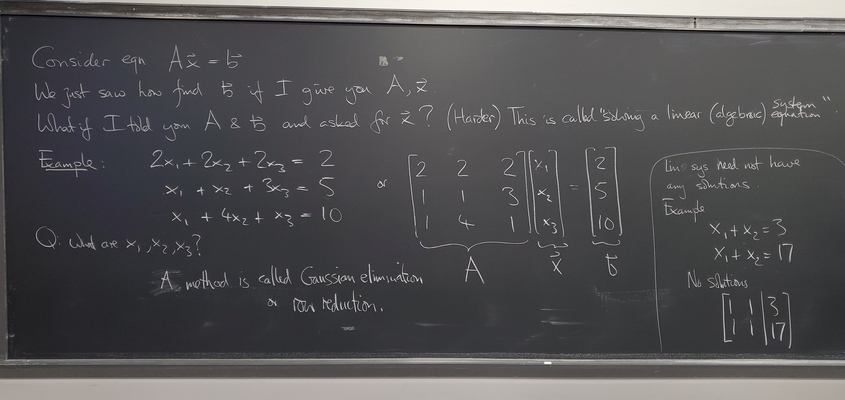 Consider eqn A x⃗ = b⃗
We just saw how find b⃗ if I give you A, x⃗
What if I told you A & b⃗ and asked for x⃗? (Harder) This is called "solving a linear (algebraic) system equation".
Example: 2x₁ + 2x₂ + 2x₃ = 2
x₁ + x₂ + 3x₃ = 5
x₁ + 4x₂ + x₃ = 10
or
[2 2 2] [x₁] = [2]
[1 1 3] [x₂] = [5]
[1 4 1] [x₃] = [10]
A x⃗ b⃗
Q: What are x₁, x₂, x₃?
A method is called Gaussian elimination
or row reduction.
Lin sys need not have
any solutions.
Example
x₁ + x₂ = 3
x₁ + x₂ = 17
No solutions
[1 1 | 3]
[1 1 | 17]